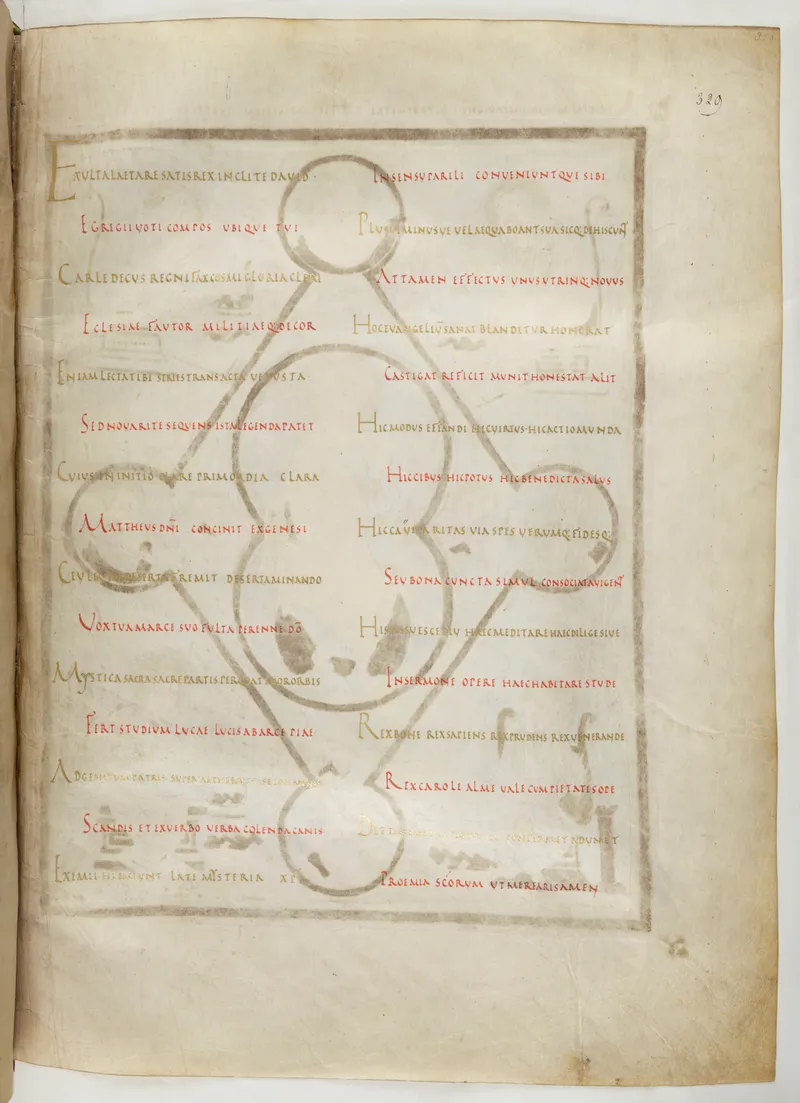 329
EXULTA LAETARE SATIS REX INCLITE DAVID
EGREGII VOTI COMPOS UBIQUE TUI
CARLE DECUS REGNI FAX COSMI GLORIA CLERI
ECLESIAE FAUTOR MILITIAEQ DECOR
EN IAM LECTA TIBI SERIES TRANSACTA VETUSTA
SED NOVA RITE SEQUENS ISTA LEGENDA PATET
CUIUS IN INITIO QUARE PRIMORDIA CLARA
MATTHEUS DNI CONCINIT EX GENESI
DESERTA MINANDO
VOX TUA MARCE SUO FULTA PERENNE DO
MYSTICA SACRA SACRE PARTIS ORBIS
FERT STUDIUM LUCAE LUCIS AB ARCE PIAE
AD PATRIS
SCANDIS ET EX VERBO VERBA COLENDA CANIS
EXIMII LATE MYSTERIA XPI
IN SENSU PARILI CONVENIUNTQUE SIBI
PLUS MINUSVE VEL AEQUA BOANT SUA SICQ DEHISCUNT
ATTAMEN EFFECTUS UNUS UTRINQ NOVUS
HOC EVANGELIU SANAT BLANDITUR HONORAT
CASTIGAT REFICIT MUNIT HONESTAT ALIT
HIC MODUS EFFANDI HIC VIRTUS HIC ACTIO MUNDA
HIC CIBUS HIC POTUS HIC BENEDICTA SALUS
HIC CARITAS VIA SPES VERUMQ FIDESQ
SEU BONA CUNCTA SIMUL CONSOCIATA VIGENT
HAEC MEDITARE HAEC DILIGE SIVE
IN SERMONE OPERE HAEC HABITARE STUDE
REX BONE REX SAPIENS REX PRUDENS REX VENERANDE
REX CAROLE ALME VALE CUM PIETATES OPE
PROEMIA SCORUM UT MEREARIS AMEN